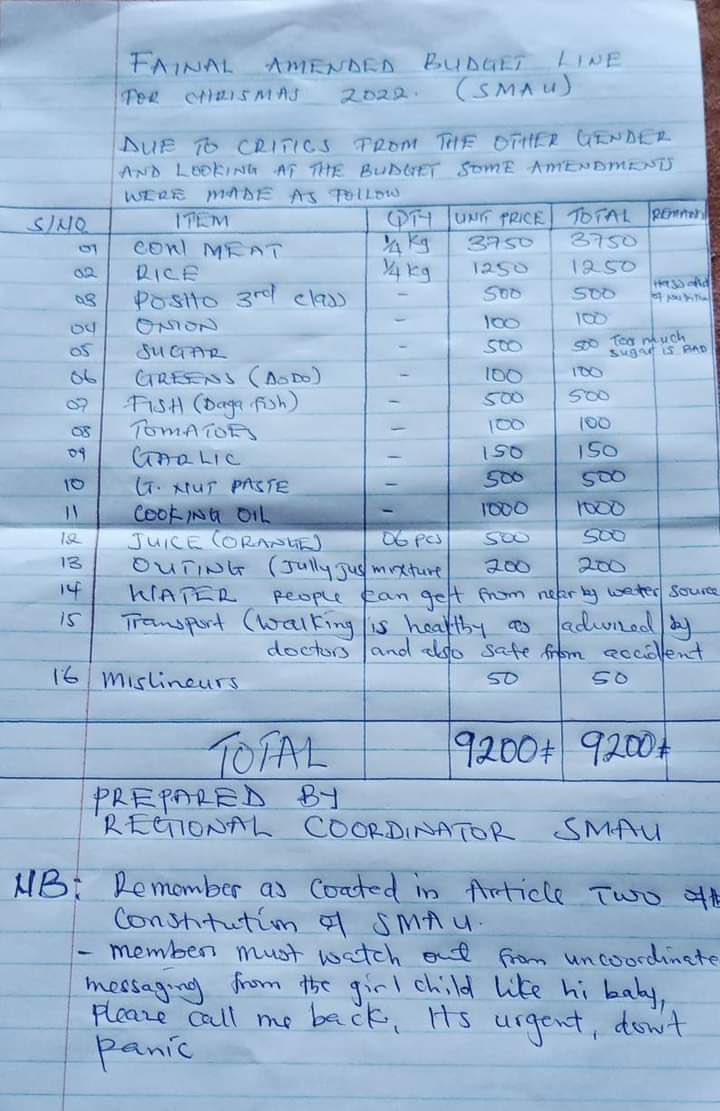 FAINAL AMENDED BUDGET LINE
FOR CHRISMAS 2022. (SMAU)
DUE TO CRITICS FROM THE OTHER GENDER
AND LOOKING AT THE BUDGET SOME AMENDMENTS
WERE MADE AS FOLLOW
S/NO ITEM QTY UNIT PRICE TOTAL REMARK
01 COW MEAT 1/4 kg 3750 3750
02 RICE 1/4 kg 1250 1250
03 POSHO 3rd class - 500 500
04 ONION - 100 100
05 SUGAR - 500 500 Too much sugar is BAD
06 GREENS (DODO) - 100 100
07 FISH (Daga fish) - 500 500
08 TOMATOES - 100 100
09 GARLIC - 150 150
10 G. NUT PASTE - 500 500
11 COOKING OIL - 1000 1000
12 JUICE (ORANGE) 06 pcs 500 500
13 OUTING (Jully jus mixture 200 200
14 WATER people can get from near by water source
15 Transport (walking is healthy as adviced by
doctors and also safe from accident
16 Mislineurs 50 50
TOTAL 9200≠ 9200≠
PREPARED BY
REGIONAL COORDINATOR SMAU
NB: Remember as coated in Article Two of the
Constitution of SMAU.
- members must watch out from uncoordinate
messaging from the girl child like hi baby,
please call me back, Its urgent, don't
panic